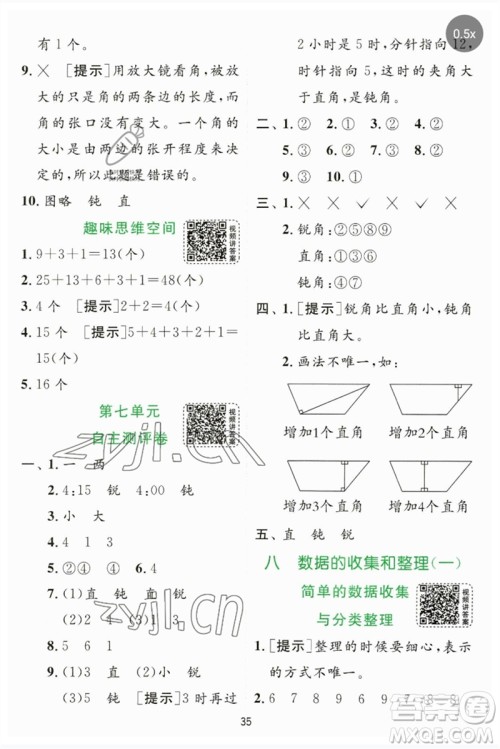 有1个。
9. ✕ [提示]用放大镜看角，放大的只是角的两条边的长度，而角的张口没有变大。角的大小是由两条边的张开程度决定的，所以此题是错误的。
10. 图略 钝 直
趣味思维空间
视频讲答案
1. 9+3+1=13(个)
2. 25+13+6+3+1=48(个)
3. 4个 [提示]2+2=4(个)
4. 15个 [提示]5+4+3+2+1=
15(个)
5. 16个
第七单元
自主测评卷
视频讲答案
一、1. 一 两
2. 4:15 锐 4:00 钝
3. 小 大
4. 6 1 3 5. 2 6. 4
7. (1)直 钝 直 锐
(2)2 4 (3)1
8. 5 6 11
9. (1)3 直 (2)小 锐
(3)5 钝 [提示]3时再过
2小时是5时，分针指向12，
时针指向5，这时的夹角大
于直角，是钝角。
二、1. ② 2. ① 3. ② 4. ①
5. ③ 6. ③ 7. ② 8. ①
9. ②
三、1. ✕ 2. ✓ 3. ✕ 4. ✕
5. ✓ 锐角：②⑤⑥
钝角：①③⑧
直角：④⑦
四、1. [提示]锐角比直角小，钝角
比直角大。
2. 画法不唯一，如：
增加1个直角 增加2个直角
增加3个直角 增加4个直角
五、直 钝 锐
八 数据的收集和整理(一)
简单的数据收集
与分类整理
视频讲答案
1. [提示]整理的时候要细心，表示
的方式不唯一。
2. 6 7 8 9 9 6 7
35
0.5x
zyjl.cn
zyjl.cn
答案圈
MXQE.COM